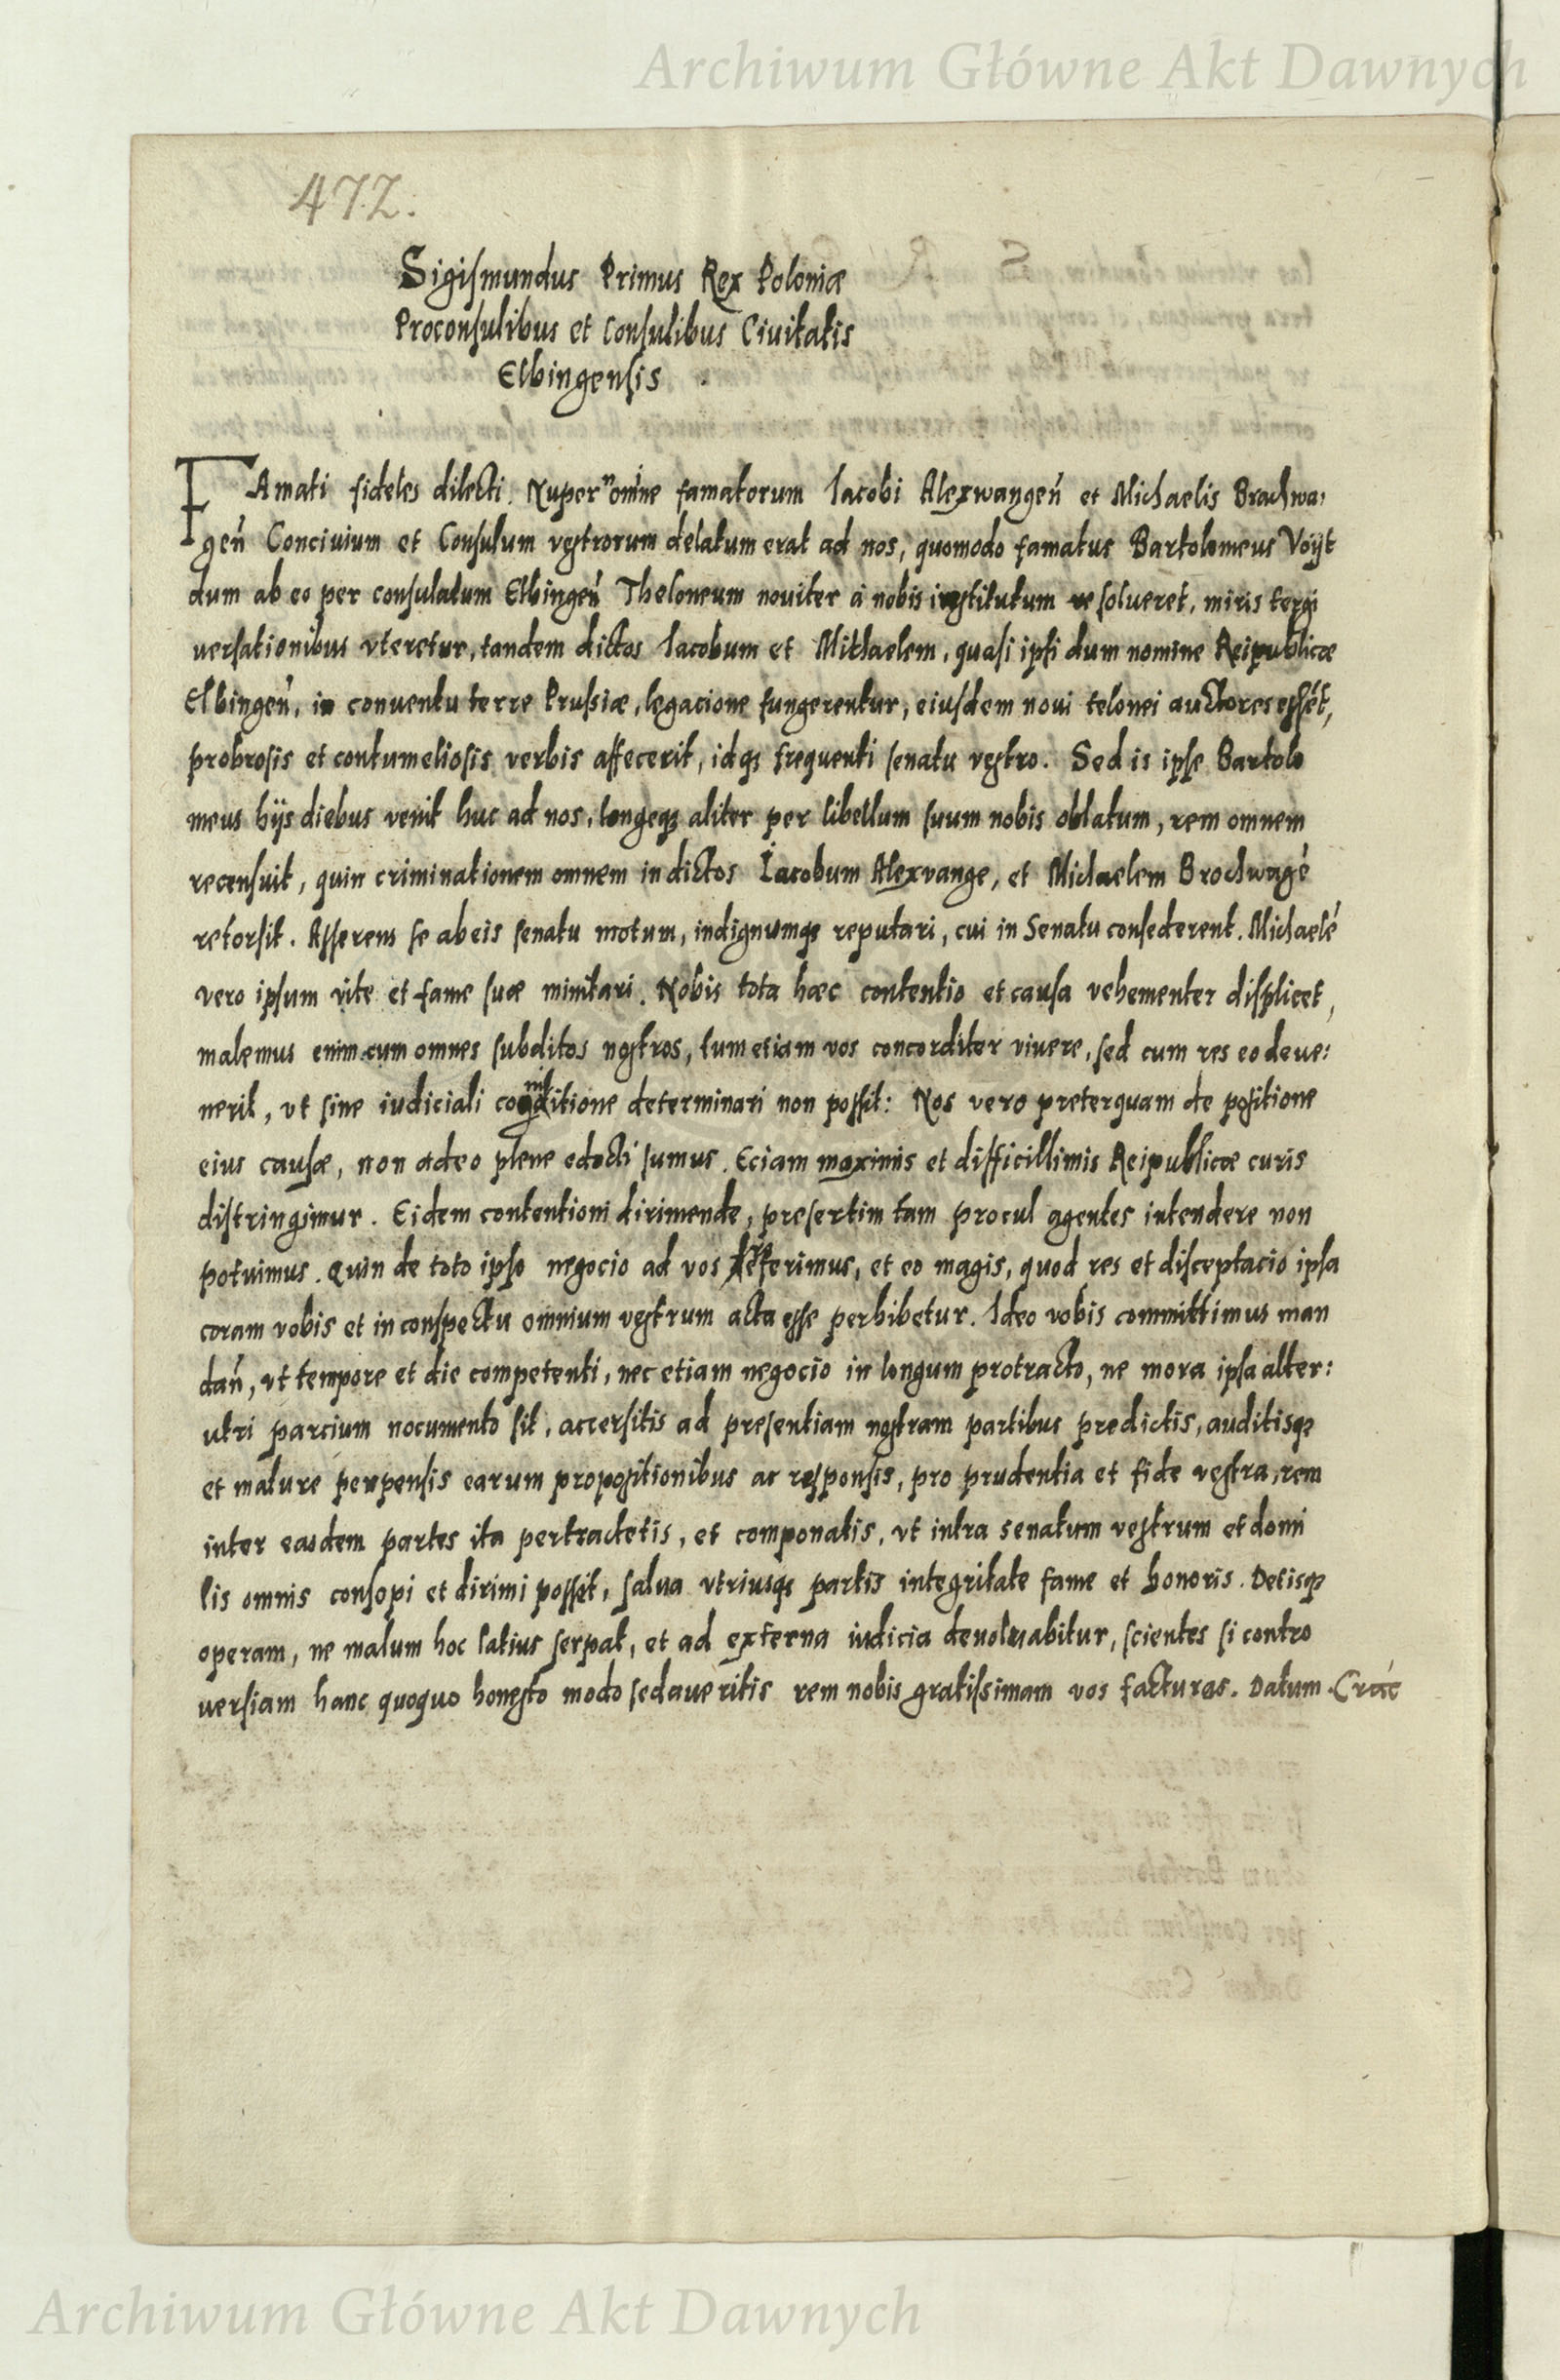 Archiwum Główne Akt Dawnych
472.
Sigismundus Primus Rex Poloniæ
Proconsulibus et Consulibus Ciuitatis
Elbingensis
FAmati fideles dilecti. Nuper nomine famatorum Iacobi Alexwangeń et Michaelis Brachwa,
geń Conciuium et Consulum vestrorum delatum erat ad nos, quomodo famatus Bartolomeus Voÿt
dum ab eo per consulatum Elbingeń Theloneum nouiter a nobis institutum solueret, miris tergi
uersationibus vteretur, tandem dictos Iacobum et Michaelem, quasi ipsi dum nomine Reipublicæ
Elbingeń, in conuentu terre Prussiæ, legacione fungerentur, eiusdem noui telonei auctores essēt,
probrosis et contumeliosis verbis affecerit, idq3 frequenti senatu vestro. Sed is ipse Bartolo
meus hijs diebus venit huc ad nos, longeq3 aliter per libellum suum nobis oblatum, rem omnem
recensuit, quin criminationem omnem in dictos Iacobum Alexvange, et Michaelem Brochwagē
retorsit. Asserens se ab eis senatu motum, indignumq3 reputari, cui in Senatu consederent. Michaelē
vero ipsum vite et fame suæ minitari. Nobis tota hæc contentio et causa vehementer displicet,
malemus enim cum omnes subditos nostros, tum etiam vos concorditer viuere, sed cum res eo deue:
nerit, vt sine iudiciali cognitione determinari non possit: Nos vero preterquam de positione
eius causæ, non adeo plene edocti sumus. Eciam maximis et difficillimis Reipublicæ curis
distringimur. Eidem contentioni dirimende, presertim tam procul agentes intendere non
potuimus. Quin de toto ipso negocio ad vos referimus, et eo magis, quod res et disceptacio ipsa
coram vobis et in conspectu omnium vestrum acta esse perhibetur. Ideo vobis committimus man
dań, vt tempore et die competenti, nec etiam negocio in longum protracto, ne mora ipsa alter:
utri parcium nocumento sit, accersitis ad presentiam nostram partibus predictis, auditisq3
et mature perpensis earum propositionibus ac responsis, pro prudentia et fide vestra, rem
inter easdem partes ita pertractetis, et componatis, vt intra senatum vestrum et domi
lis omnis consopi et dirimi possit, salua vtriusq3 partis integritate fame et honoris. Detisq3
operam, ne malum hoc latius serpat, et ad externa iudicia deuoluabitur, scientes si contro
uersiam hanc quoquo honesto modo sedaueritis rem nobis gratissimam vos facturos. Datum Crać
Archiwum Główne Akt Dawnych